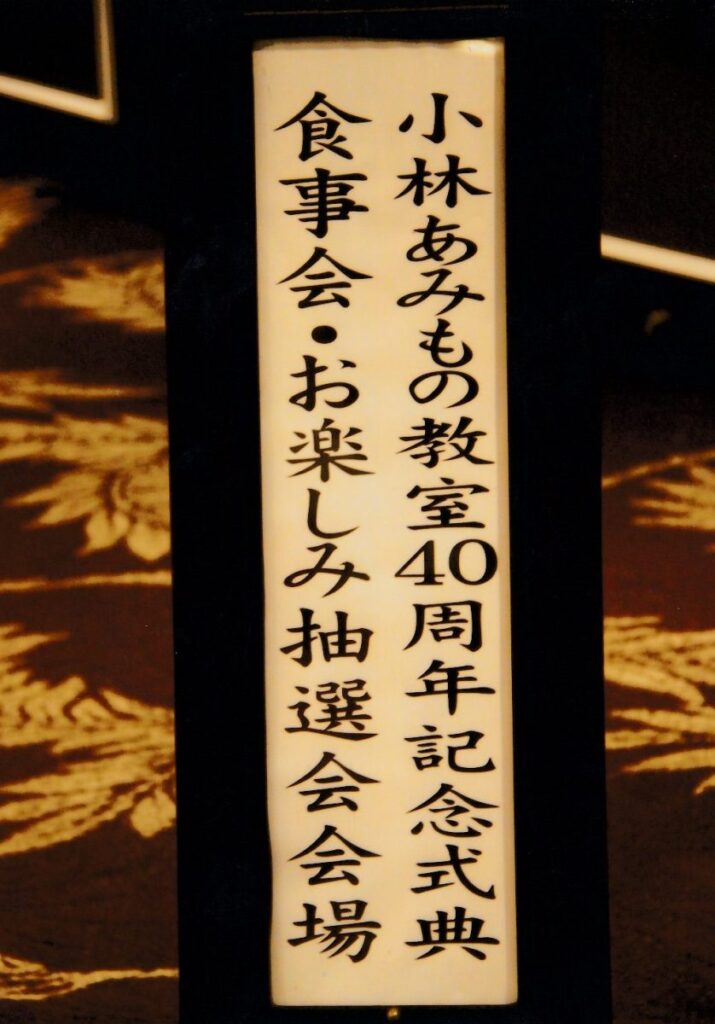 小林あみもの教室40周年記念式典
食事会・お楽しみ抽選会会場